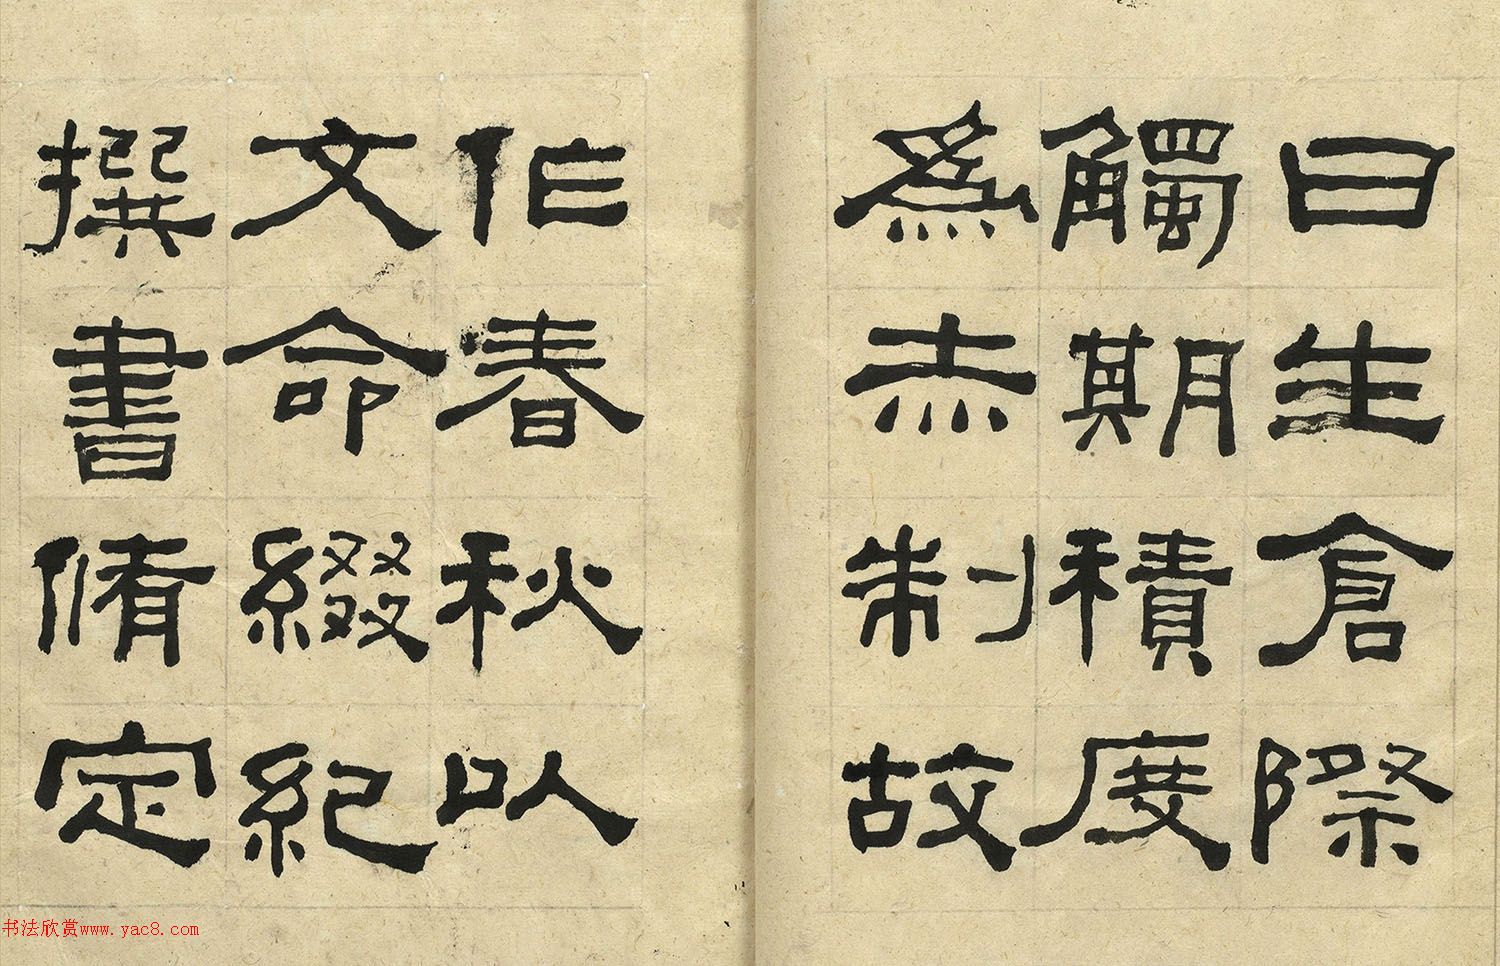 曰生倉際
觸期積度
為赤制故
作春秋以
文命綴紀
撰書脩定
书法欣赏www.yac8.com